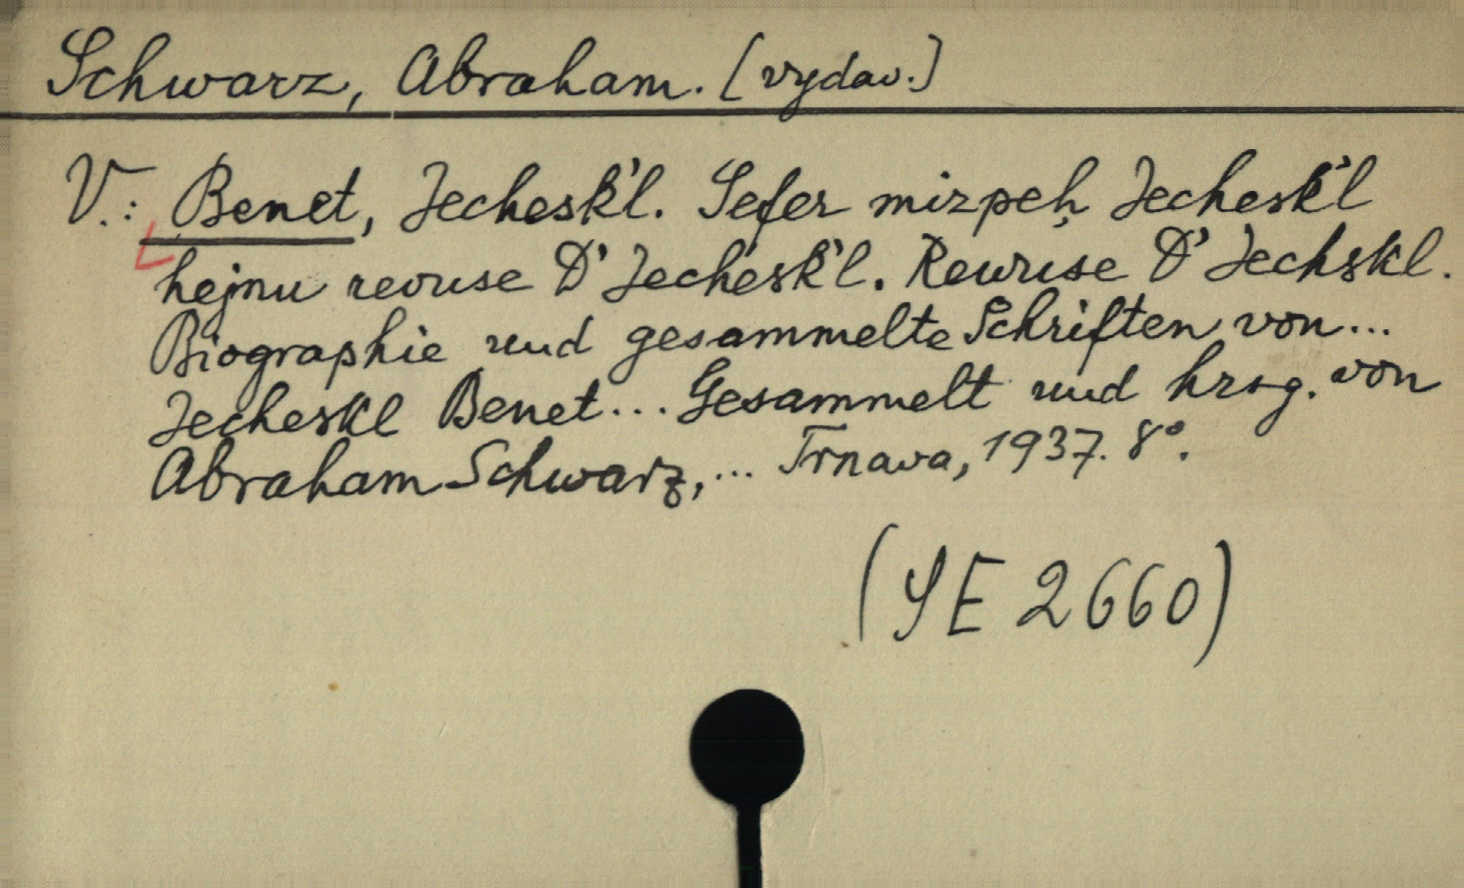 Schwarz, Abraham. [vydav.]
V.: Benet, Jechesk'l. Sefer mizpeḥ Jechesk'l
hejnu revuse D' Jechesk'l. Rewuse D' Jechskl.
Biographie und gesammelte Schriften von...
Jecheskl Benet... Gesammelt und hrsg. von
Abraham Schwarz,... Trnava, 1937. 8°.
(SE 2660)